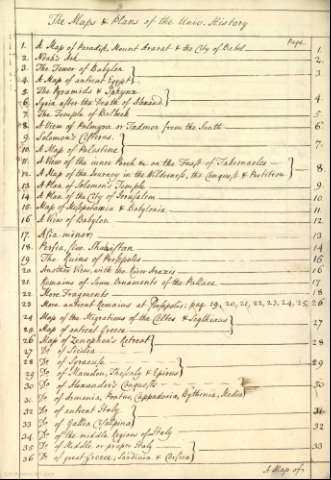 The Maps & Plans of the Univ. History
Page
1. A Map of Paradise, Mount Ararat & the City of Babel 1
2. Noah's Ark 2
3. The Tower of Babylon 3
4. A Map of antient Egypt
5. The Pyramids & Sphynx 4
6. Syria after the Death of
7. The Temple of Balbeck 5
8. A View of Palmyra or Tadmor from the South 6
9. Solomon's Cisterns 7
10. A Map of Palestine
11. A View of the inner Porch &c on the Feast of Tabernacles 8
12. A Map of the Journey in the Wilderness, the Conquest & Partition
13. A Plan of Solomon's Temple 9
14. A Plan of the City of Jerusalem 10
15. Map of Mesopotamia & Babylonia 11
16. A View of Babylon 12
17. Asia minor 13
18. Persia, sive Shahistan 14
19. The Ruins of Persepolis 15
20. Another View, with the River Araxis 16
21. Remains of some Ornaments of the Pallace 17
22. More Fragments 18
23. More antient Remains at Persepolis; pag. 19, 20, 21, 22, 23, 24, 25, 26
24. Map of the Migrations of the Celtes & Scythians 27
25. Map of antient Greece
26. Map of Xenophon's Retreat 28
27. Do of Sicilia
28. Do of Syracuse 29
29. Do of Macedon, Thessaly & Epirus
30. Do of Alexander's Conquests 30
31. Do of Armenia, Pontus, Cappadocia, Bythinia, Media 31
32. Do of antient Italy 32
33. Do of Gallia Cisalpina
34. Do of the middle Regions of Italy
35. Do of Middle or proper Italy 33
36. Do of great Greece, Sardinia & Corsica
A Map of